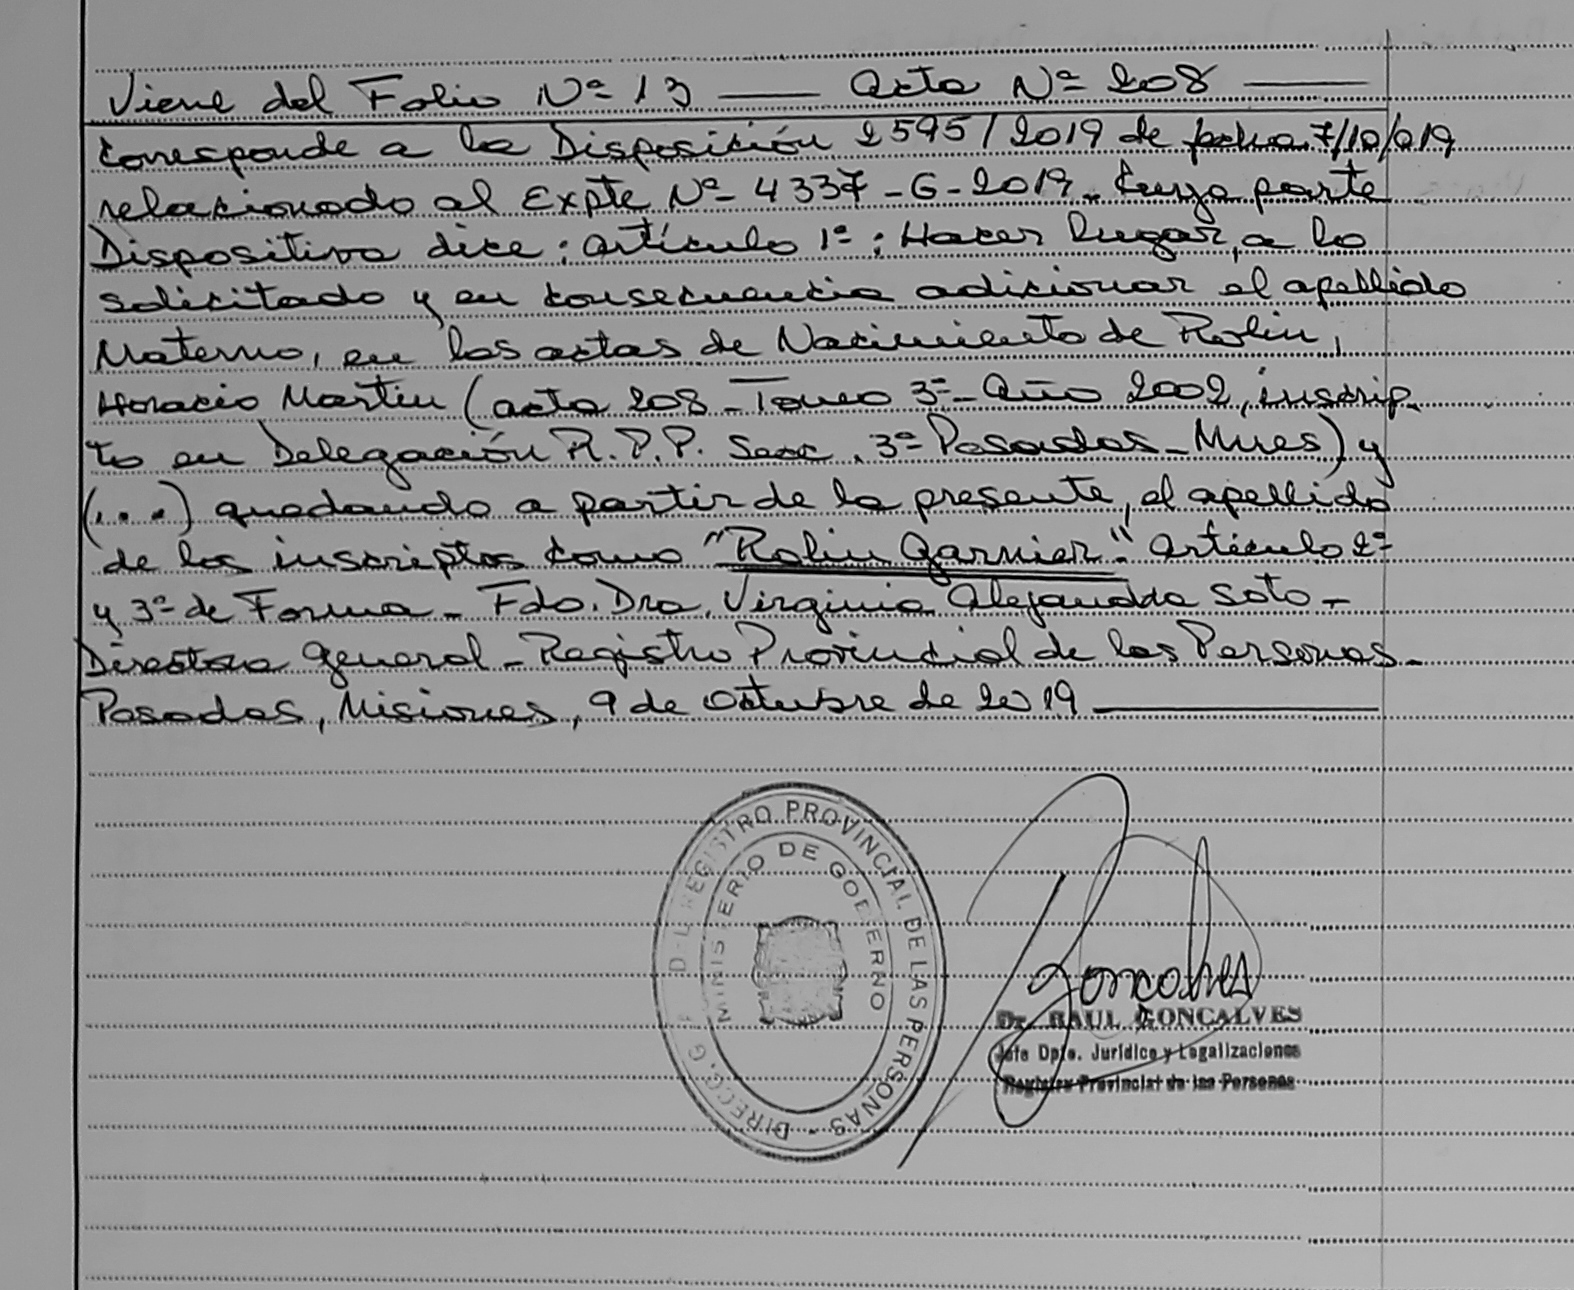 Viene del Folio Nº 13 —— Acta Nº 208 ——
Corresponde a la Disposición 2595/2019 de fecha 7/10/019
relacionado al Expte Nº 4337-G-2019. Cuya parte
Dispositiva dice: Artículo 1º: Hacer lugar, a lo
solicitado y en consecuencia adicionar el apellido
Materno, en las actas de Nacimiento de Rolin,
Horacio Martin (acta 208 - Tomo 3º - Año 2002, inscrip-
to en Delegación R.P.P. Secc. 3º Posadas - Mnes) y
(...) quedando a partir de la presente, el apellido
de los inscriptos como "Rolin Garnier". Artículo 2º
y 3º de Forma - Fdo. Dra. Virginia Alejandra Soto -
Directora General - Registro Provincial de las Personas -
Posadas, Misiones, 9 de Octubre de 2019 ——
DIRECC. G DEL REGISTRO PROVINCIAL DE LAS PERSONAS -
MINISTERIO DE GOBIERNO
Goncalves
Dr. RAUL GONCALVES
Jefe Dpto. Jurídico y Legalizaciones
Registro Provincial de las Personas